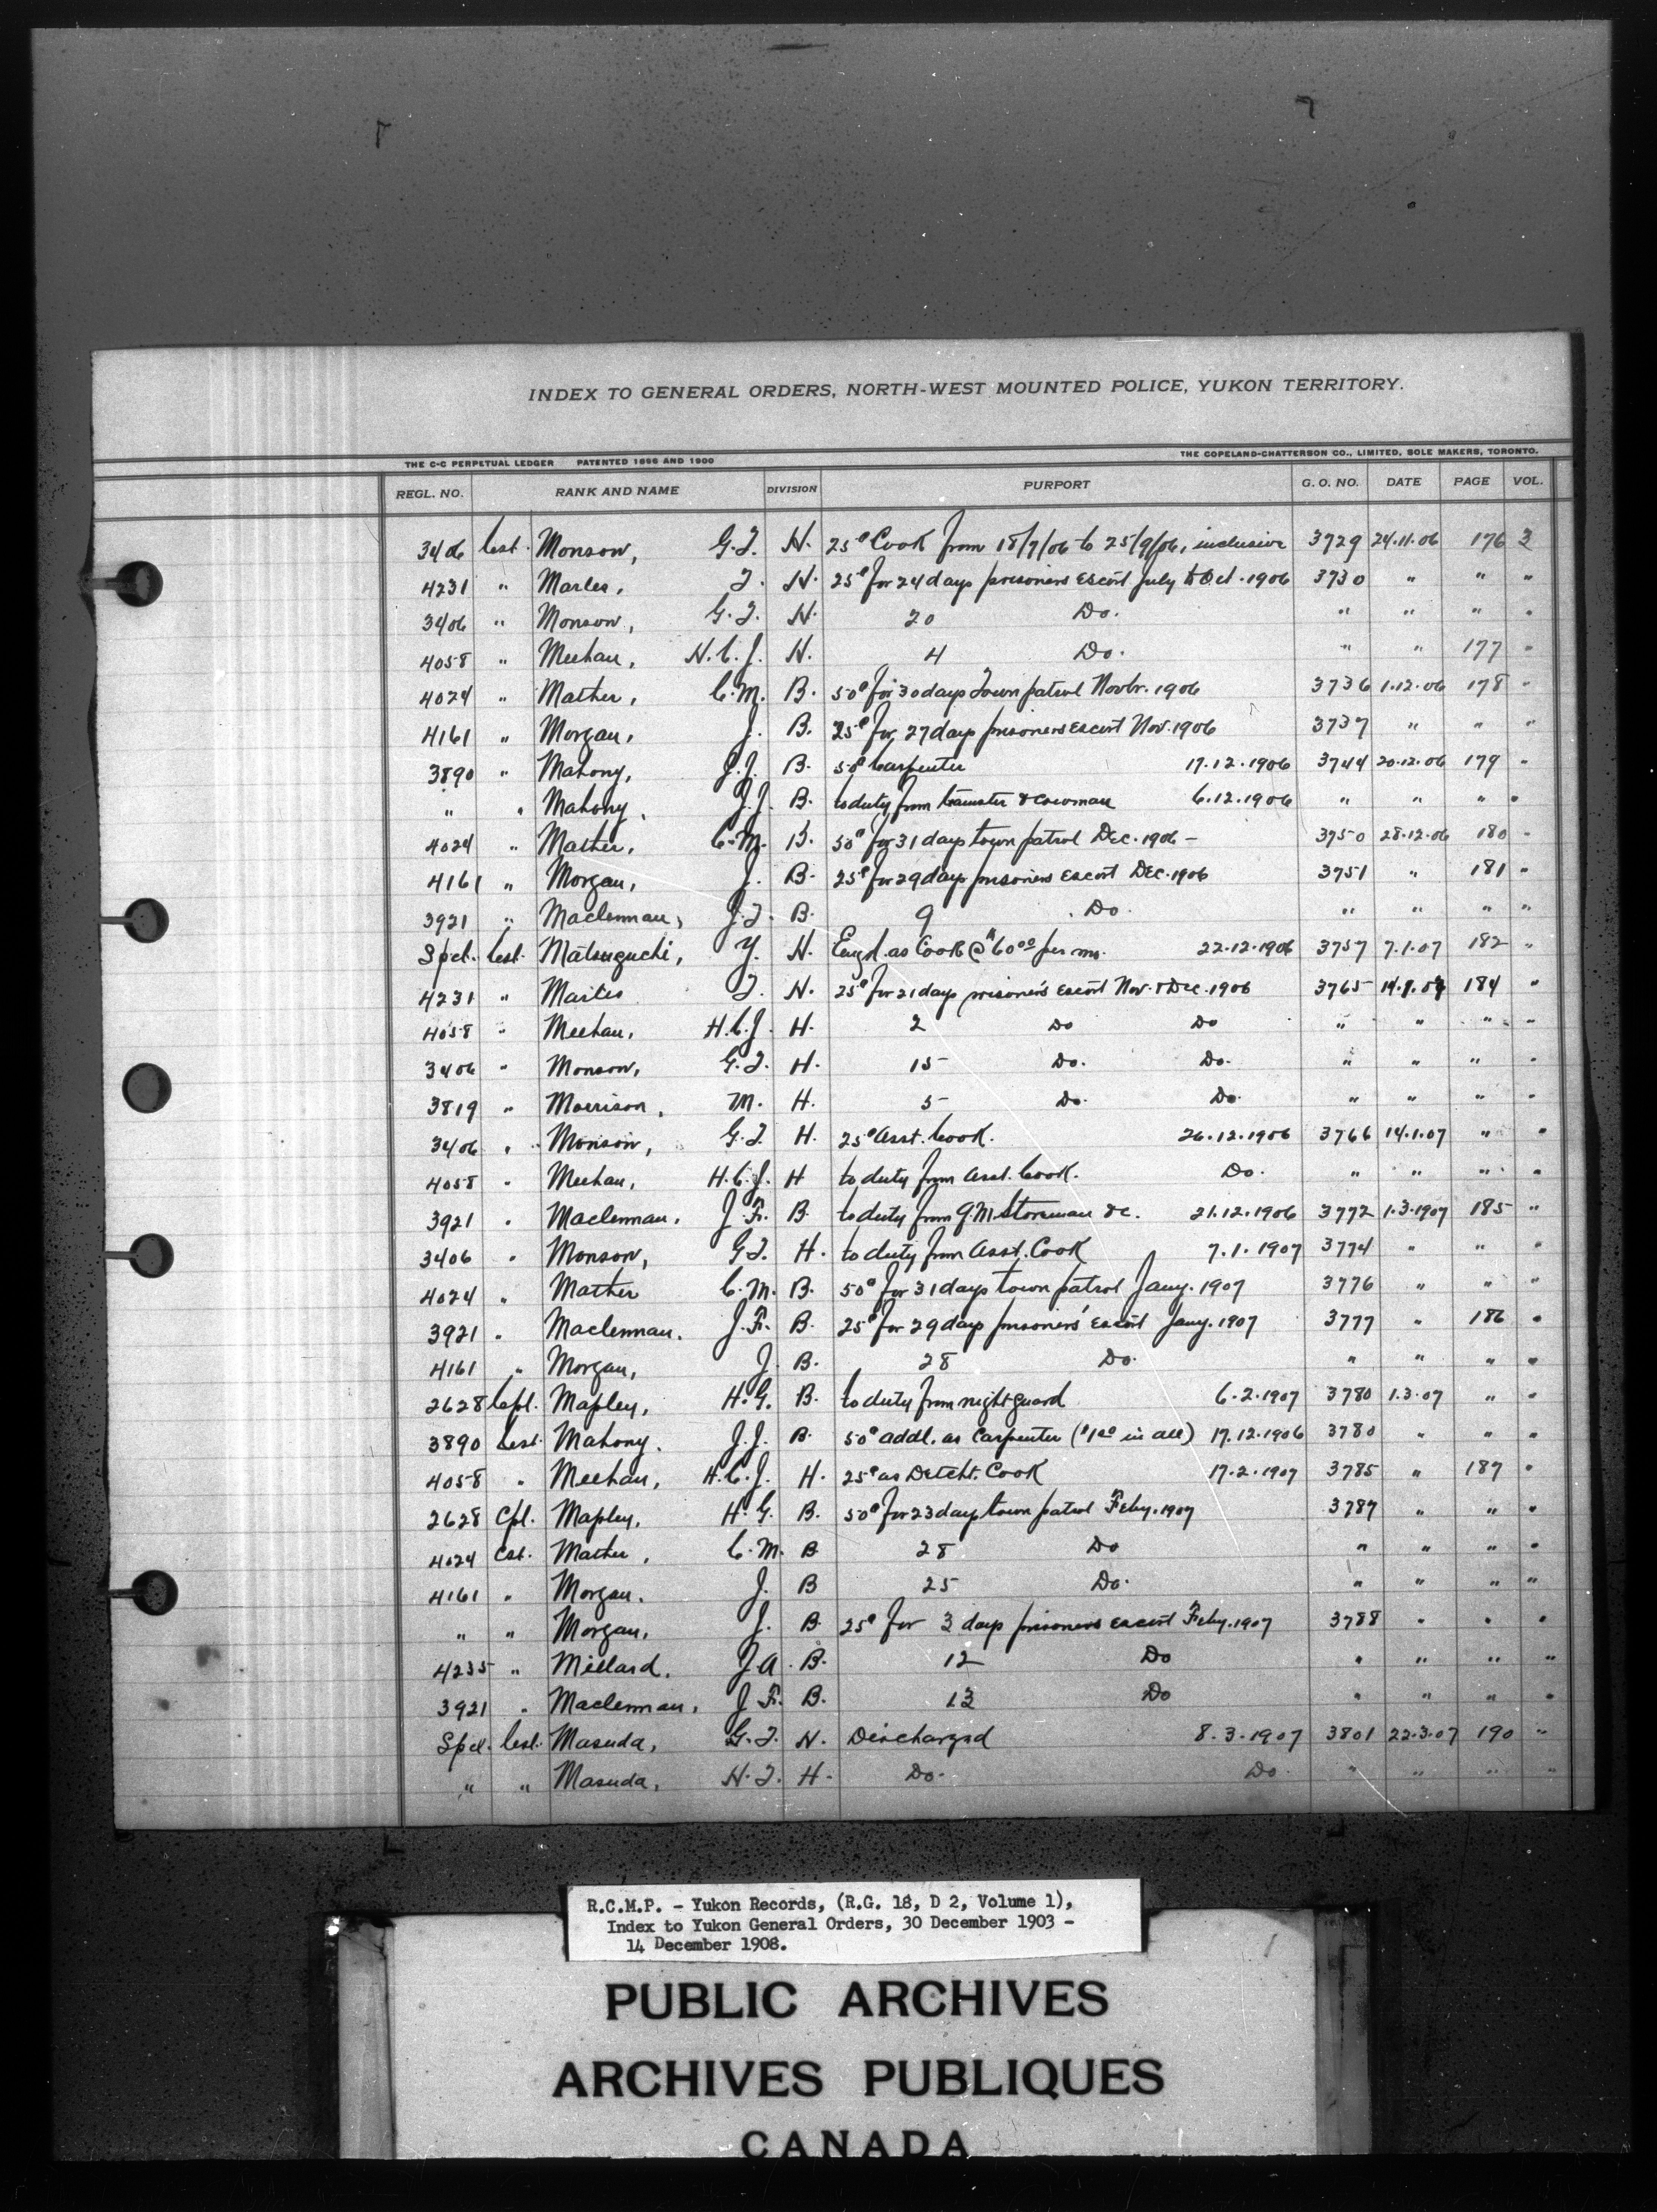 INDEX TO GENERAL ORDERS, NORTH-WEST MOUNTED POLICE, YUKON TERRITORY.
THE C-C PERPETUAL LEDGER PATENTED 1896 AND 1900 THE COPELAND-CHATTERSON CO., LIMITED, SOLE MAKERS, TORONTO.
REGL. NO. RANK AND NAME DIVISION PURPORT G. O. NO. DATE PAGE VOL.
3406 Cst. Monson, G.T. H. 25¢ Cook from 18/9/06 to 25/9/06, inclusive 3729 24.11.06 176 3
4231 " T. H. 25¢ for 24 days prisoners Escort July to Oct. 1906 3730 " " "
3406 " Monson, G.T. H. 20 Do. " " " "
4058 " Meehan, H.C.J. H. 4 Do. " " 177 "
4024 " Mather, C.M. B. 50¢ for 30 days Town patrol Novbr. 1906 3736 1.12.06 178 "
4161 " Morgan, J. B. 25¢ for 27 days prisoners Escort Nov. 1906 3737 " " "
3890 " Mahony, J.J. B. 50¢ Carpenter 17.12.1906 3744 20.12.06 179 "
" " Mahony, J.J. B. to duty from teamster & cowman 6.12.1906 " " " "
4024 " Mather, C.M. B. 50¢ for 31 days town patrol Dec. 1906 - 3750 28.12.06 180 "
4161 " Morgan, J. B. 25¢ for 29 days prisoners Escort Dec. 1906 3751 " 181 "
3921 " Maclennan, J.F. B. 9 Do. " " " "
Spel. Cst. Matsuguchi, Y. H. Eng'd. as Cook @ $60.00 per mo. 22.12.1906 3757 7.1.07 182 "
4231 " T. H. 25¢ for 21 days prisoner's Escort Nov. & Dec. 1906 3765 14.1.07 184 "
4058 " Meehan, H.C.J. H. 2 Do Do " " " "
3406 " Monson, G.T. H. 15 Do. Do. " " " "
3819 " Morrison, M. H. 5 Do. Do. " " " "
3406 " Monson, G.T. H. 25¢ Asst. Cook. 26.12.1906 3766 14.1.07 " "
4058 " Meehan, H.C.J. H to duty from Asst. Cook. Do. " " " "
3921 " Maclennan, J.F. B. to duty from Q.M Storeman &c. 21.12.1906 3772 1.3.1907 185 "
3406 " Monson, G.T. H. to duty from Asst. Cook 7.1.1907 3774 " " "
4024 " Mather C.M. B. 50¢ for 31 days town patrol Jany. 1907 3776 " " "
3921 " Maclennan. J.F. B. 25¢ for 29 days prisoners' Escort Jany. 1907 3777 " 186 "
4161 " Morgan, J. B. 28 Do. " " " "
2628 Cpl. Mapley, H.G. B. to duty from night guard 6.2.1907 3780 1.3.07 " "
3890 Cst. Mahony. J.J. B. 50¢ addl. as Carpenter ($1.00 in all) 17.12.1906 3780 " " "
4058 " Meehan, H.C.J. H. 25¢ as Detcht. Cook 17.2.1907 3785 " 187 "
2628 Cpl. Mapley, H.G. B. 50¢ for 23 days town patrol Feby. 1907 3787 " " "
4024 Cst. Mather, C.M. B 28 Do " " " "
4161 " Morgan. J. B 25 Do. " " " "
" " Morgan, J. B. 25¢ for 3 days prisoners escort Feby. 1907 3788 " " "
4235 " Millard, J.A. B. 12 Do " " " "
3921 " Maclennan, J.F. B. 13 Do " " " "
Spel. Cst. Masuda, G.T. H. Discharged 8.3.1907 3801 22.3.07 190 "
" " Masuda, H.T. H. Do. Do. " " " "
R.C.M.P. - Yukon Records, (R.G. 18, D 2, Volume 1),
Index to Yukon General Orders, 30 December 1903 -
14 December 1908.
PUBLIC ARCHIVES
ARCHIVES PUBLIQUES
CANADA